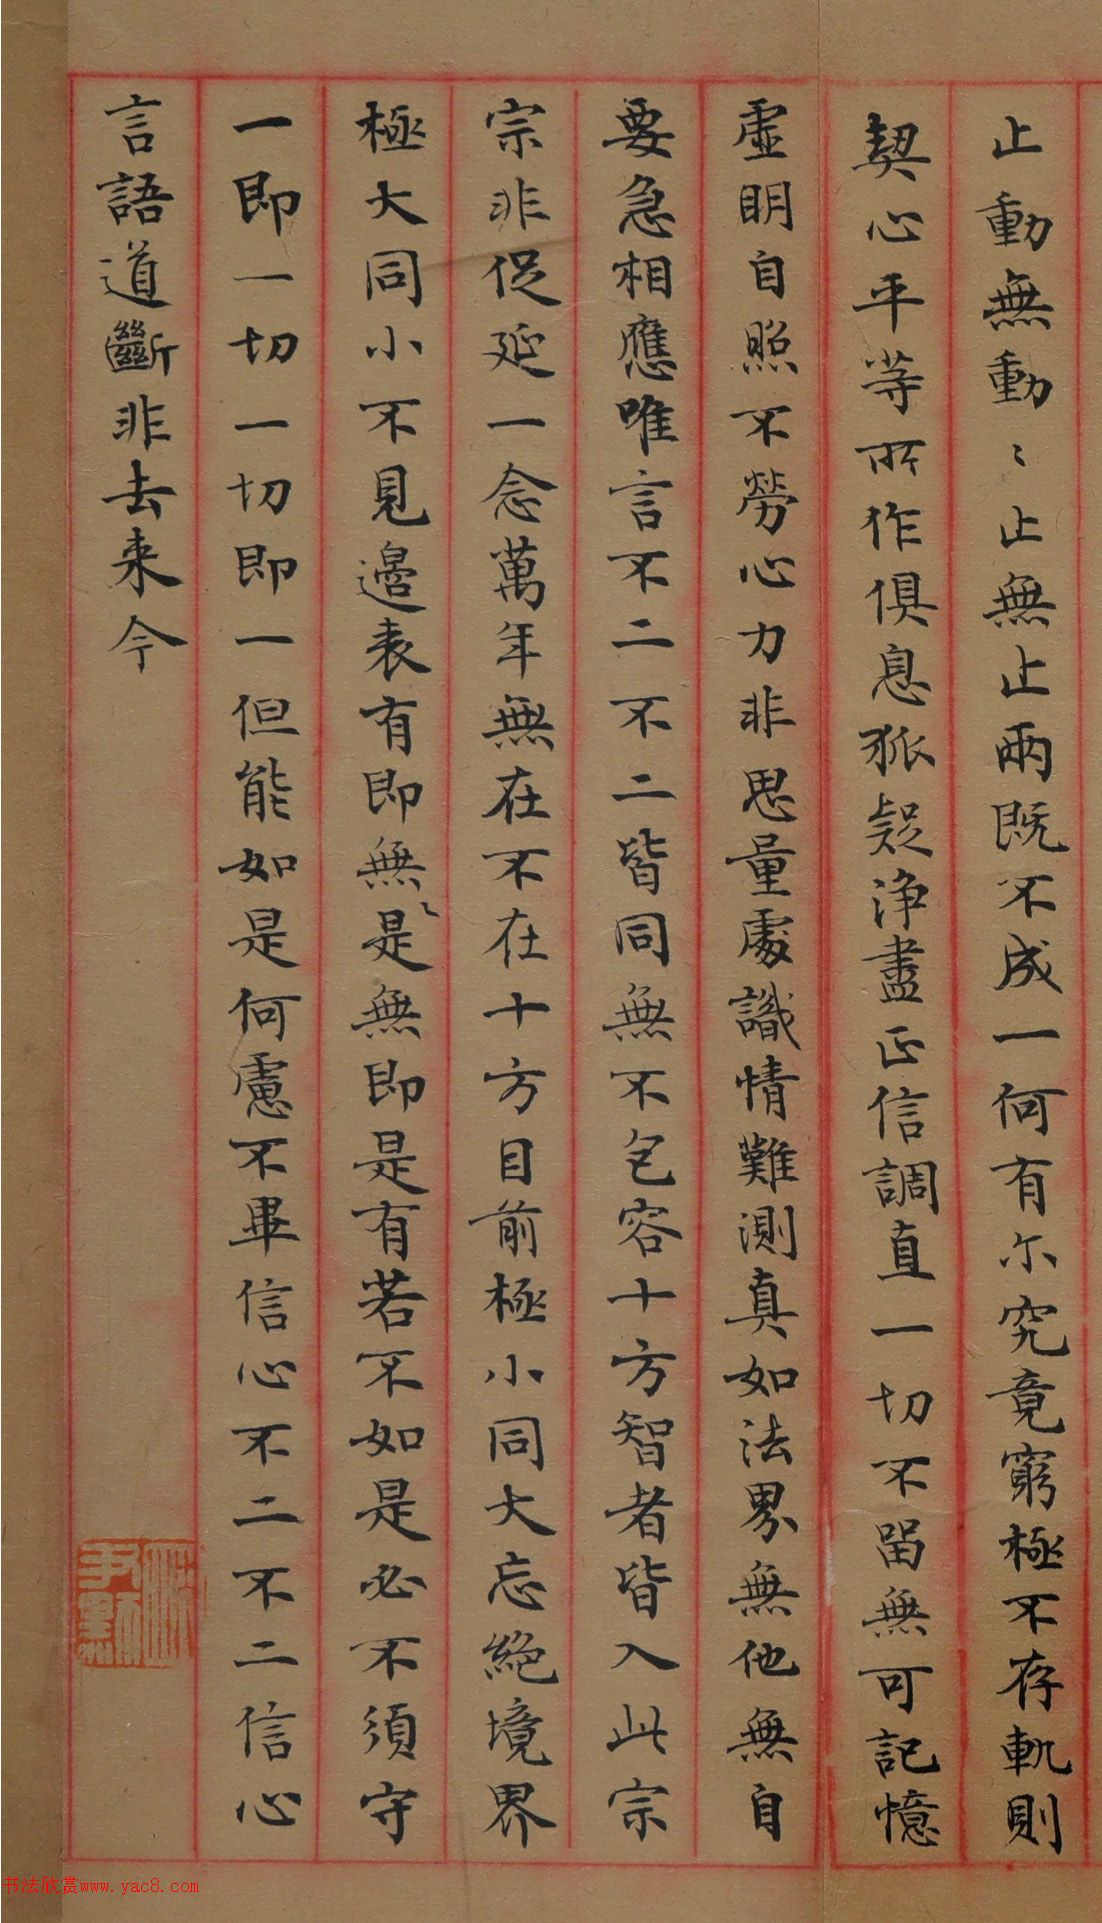 止動無動〻止無止兩既不成一何有尔究竟窮極不存軌則
契心平等所作俱息狐疑淨盡正信調直一切不留無可記憶
虛明自照不勞心力非思量處識情難測真如法界無他無自
要急相應唯言不二不二皆同無不包容十方智者皆入此宗
宗非促延一念萬年無在不在十方目前極小同大忘絕境界
極大同小不見邊表有即無〻是無即是有若不如是必不須守
一即一切一切即一但能如是何慮不畢信心不二不二信心
言語道斷非去来今
书法欣赏www.yac8.com